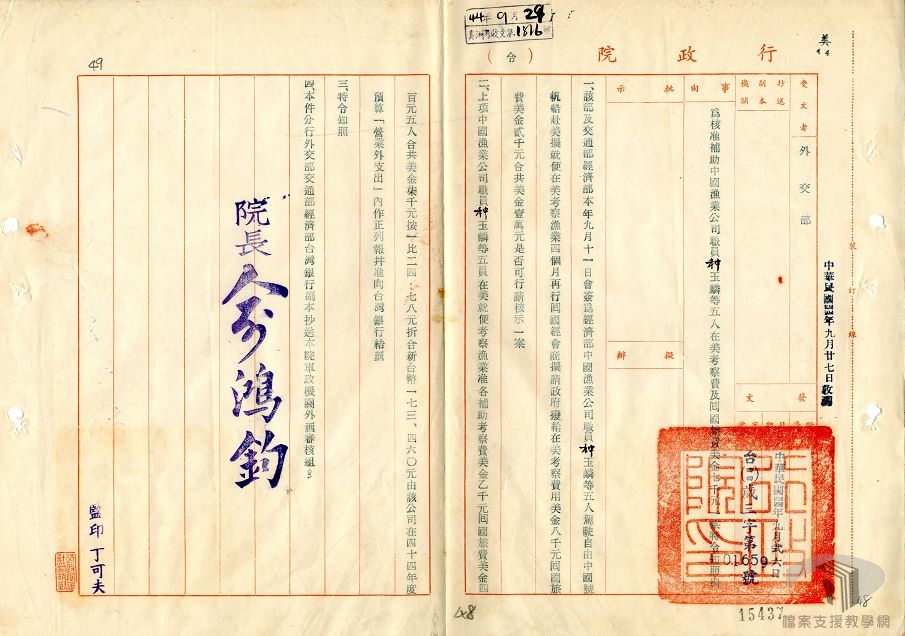 44年9月29
美洲司收文第1816號
行政院
(令)
美
受文者
外交部
抄送
副本
機關
事由
批示
擬辦
發文
裝訂線
中華民國四四年九月廿七日收到
中華民國四四年九月弍六日
台四四歲三字第
0165
號
為核准補助中國漁業公司職員种玉麟等五人在美考察費及回國旅費美金七千元
一、該部及交通部經濟部本年九月十一日會簽為經濟部中國漁業公司職員种玉麟等五人駕駛自由中國號
帆船赴美擬就便在美考察漁業四個月再行回國經會商擬請政府撥給在美考察費用美金八千元回國旅
費美金貳千元合共美金壹萬元是否可行請核示一案
二、上項中國漁業公司職員种玉麟等五員在美就便考察漁業准各補助考察費美金乙千元回國旅費美金四
百元五人合共美金柒千元按一比二四.七八元折合新台幣一七三、四六〇元由該公司在四十四年度
預算「營業外支出」內作正列報幷准向台灣銀行結匯
三、特令知照
四、本件分行外交部交通部經濟部台灣銀行副本抄送本院軍政機關外滙審核組
院長俞鴻鈞
監印丁可夫
49
48
48
15437
檔案支援教學網